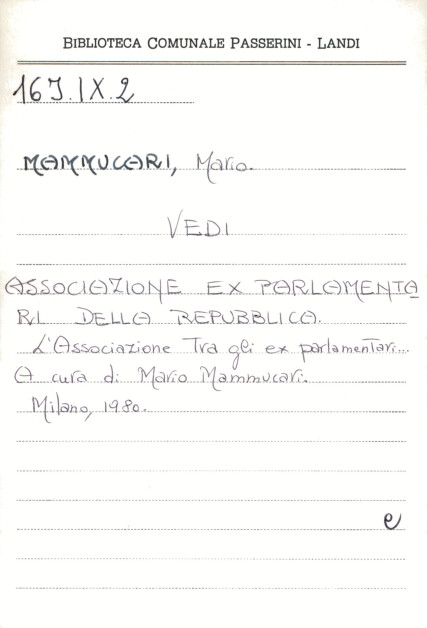 BIBLIOTECA COMUNALE PASSERINI - LANDI
16J.IX.2
MAMMUCARI, Mario.
VEDI
ASSOCIAZIONE EX PARLAMENTA
RI DELLA REPUBBLICA.
L'Associazione Tra gli ex parlamentari...
A cura di Mario Mammucari.
Milano, 1980.
e